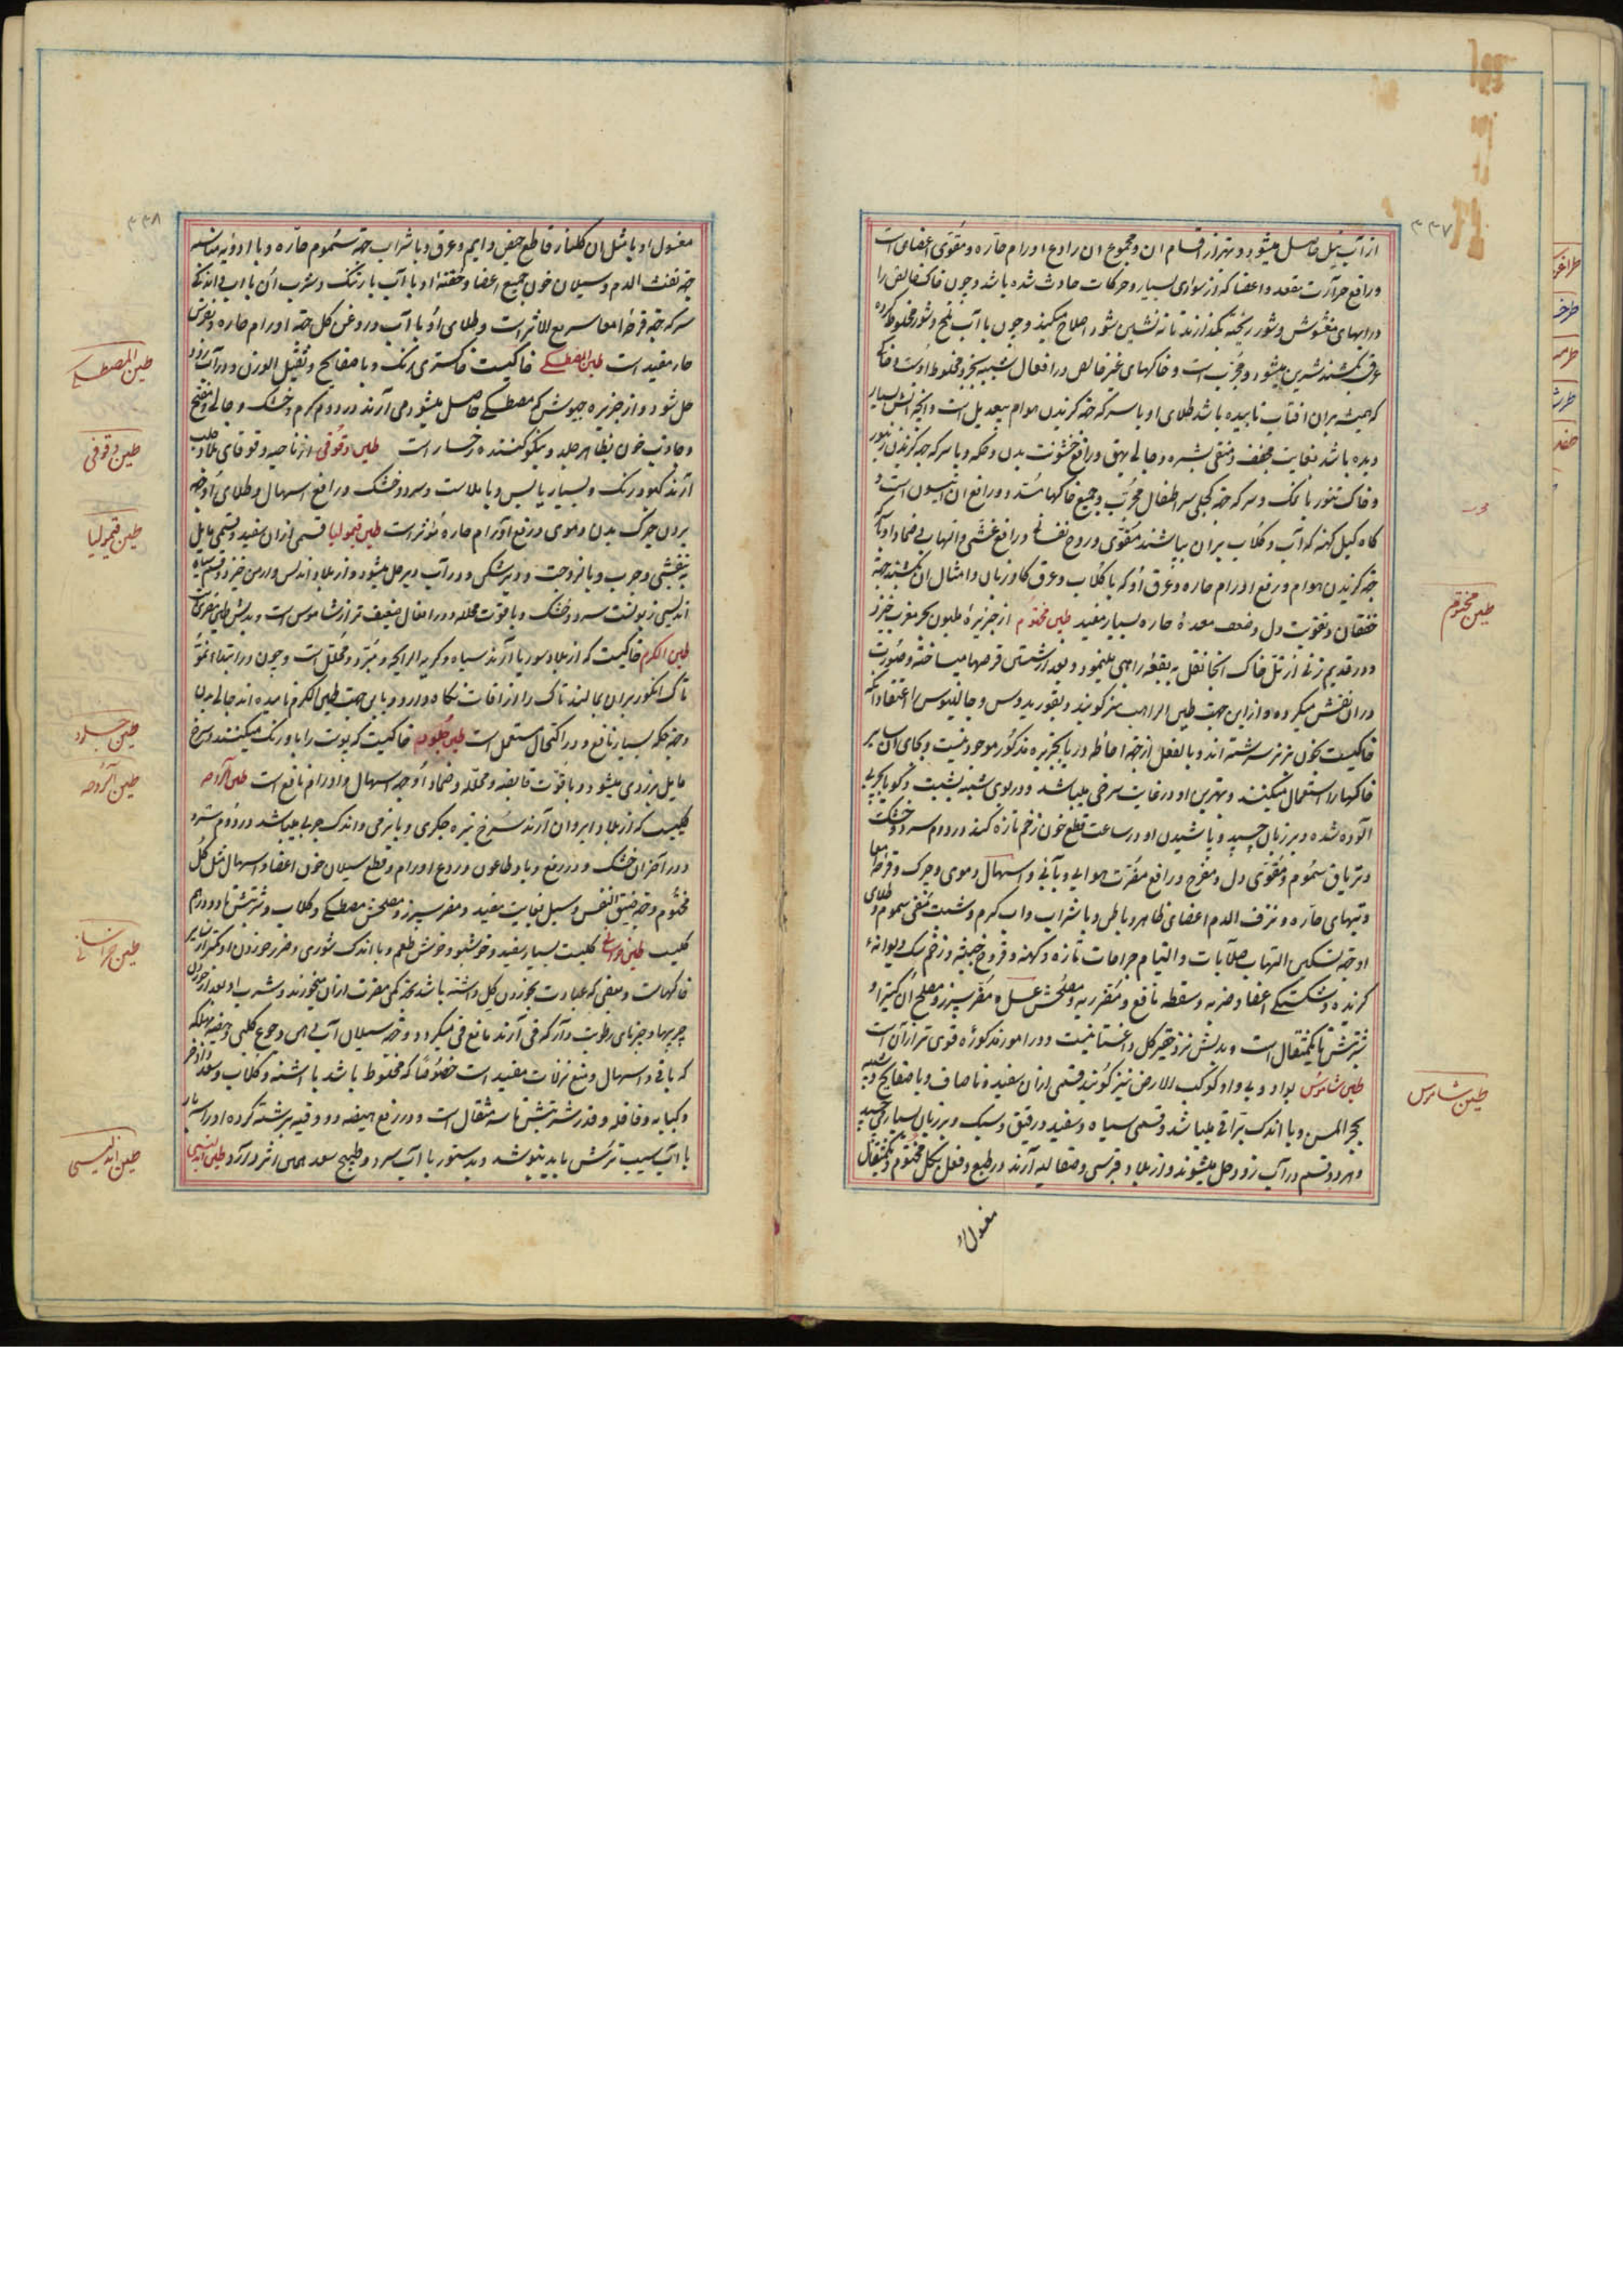 ۳۳۷
از آب نیل حاصل میشود و بهتر از اقسام ان و مجموع ان رادع اورام حاره و مقوی اعضای است
و رافع حرارت مقعد و اعضا که از سواری بسیار و حرکات حادث شده باشد و چون خاک خالص را
در ابهای مغشوش و شور ریخته بگذارند تا ته نشین شود اصلاح میکند و چون با آب تلخ و شور مخلوط کرده
عرق بکشند شیرین میشود و مجرب است و خاکهای غیر خالص در افعال شبیه بجزو مخلوط اوست و خاکی
که همیشه بران افتاب تابیده باشد طلای او با سرکه جهة گزیدن هوام بیعدیل است و انچه اتش بسیار
دیده باشد بغایت مجفف و منقی بشره و جالی بهق و رافع خشونت بدن و حکه و با سرکه جهة گزیدن زنبور
و خاک تنور با نمک و سرکه جهة کچلی سر اطفال مجرب و جمیع خاکها مسدد و رافع ان انیسون است و
کاه گل کهنه که آب و گلاب بران بپاشند مقوی و روح نفسانی و رافع غشی و التهاب بی ضماد او با سرکه
جهة گزیدن هوام و رفع اورام حاره و عرق او که با گلاب و عرق گاوزبان و امثال ان بکشند جهة
خفقان و تقویت دل و ضعف معدهٔ حاره بسیار مفید طین مختوم از جزیرهٔ ملیون بحر مغرب خیزد
و در قدیم زنی از تل خاک انجا نقل به بقعهٔ راهبی مینمود و بعد از شستن قرصها میساخته و صورت
در ان نقش میکرده و از این جهت طین الراهب نیز گویند و بقور یدوس و جالینوس را اعتقاد آنکه
خاکیست بخون بز نر سرشته اند و بالفعل از جهة احاطه دریا بجزیره مذکور موجود نیست و بجای ان سایر
خاکها را استعمال میکنند و بهترین او در غایت سرخی میباشد و در بوی شبیه بشبت و گویا بچربی
الوده شده و بر زبان چسبد و پاشیدن او در ساعت قطع خون زخم تازه کند در دوم سرد و خشک
و تریاق سموم و مقوی دل و مفرح و رافع مضرت هوایی وبایی و اسهال دموی و چرک و قرحهٔ امعا
و تبهای حاره و نزف الدم اعضای ظاهر و باطن و با شراب و اب گرم و شبت منقی سموم و طلای
او جهة تسکین التهاب صلابات و التیام جراحات تازه و کهنه و قروح خبیثه و زخم سک دیوانهٔ
گزنده و شکستگی اعضا و ضربه و سقطه نافع و مضر ریه و مصلحش عسل و مضر سپرز و مصلح ان کتیرا و
شربتش تا یکمثقال است و بدلش نزد حقیر گل داغستانیست و در امور مذکوره قوی تر از آن است
طین شاموس بواو و بی واو کوکب الارض نیز گویند قسمی ازان سفید و نا صاف و با صفایح و شبیه
بحجر المسن و با اندک براقی میباشد و قسمی سیاه و سفید و رقیق و سبک و بر زبان بسیار می چسبد
و هر دو قسم در آب زود حل میشوند و از بلاد قبرسی و صقالیه آرند در طبع و فعل بگل مختوم و یکمثقال
مغسول او
طین مختوم
طین شاموس
۳۳۸
مغسول او با مثل ان گلنار قاطع حیض دایم و عرق و با شراب جهة سموم حاره و با ادویه مناسبه
جهة نفث الدم و سیلان خون جمیع اعضا و حقنهٔ او با آب بارتنک و شرب ان با اب و اندکی
سرکه جهة قرحهٔ امعا سریع الاثر است و طلای او با آب و روغن گل جهة اورام حاره و نقرس
حار مفید است طین المصطکی خاکیست خاکستری رنگ و با صفایح و ثقیل الوزن و در آب زود
حل شود و از جزیره جیوش که مصطکی حاصل میشود می آرند در دوم گرم و خشک و جالی و مفتح
و جاذب خون بظاهر جلد و نیکو کننده رخسار است طین دقوقی از ناحیه دقوقای بلاد حلب
آرند کبود رنگ و بسیار یابس و با ملاست و سرد و خشک و رافع اسهال و طلای او جهة
بردن چرک بدن و موی و رفع اورام حاره مؤثر است طین قیمولیا قسمی ازان سفید و قسمی مایل
به بنفشی و چرب و با لزوجت و دیرشکنی و در آب دیر حل میشود و از بلاد اندلس و ارمن خیزد و قسم سیاه
اندلسی زبونست سرد و خشک و با قوت محلله و در افعال ضعیف تر از شاموس است و بدلش طین مغربی است
طین الکرم خاکیست که از بلاد سوریا آرند سیاه و کریه الرایحه و مبرد و محلل است و چون در ابتداء نمو
تاک انگور بران بمالند تاک را از آفات نگاه دارد و باین جهت طین الکرم نامیده اند جالی بدن
و جهة حکه بسیار نافع و در اکتحال مستعمل است طین جلود خاکیست که پوست را با او رنگ میکنند و سرخ
مایل بزردی میشود و با قوت قابضه و محلله و ضماد او جهة اسهال و اورام نافع است طین آلروحه
گلیست که از بلاد ایروان آرند سرخ تیره جگری و با نرمی و اندک چربی میباشد در دوم سرد
و در آخر ان خشک و در رفع وبا و طاعون و ردع اورام و قطع سیلان خون اعضا و اسهال مثل گل
مختوم و جهة ضیق النفس و سل بغایت مفید و مضر سپرز و مصلحش مصطکی و گلاب و شربتش تا دو درهم
گلیست طین خراسانی گلیست بسیار سفید و خوشبو و خوش طعم و با اندک شوری و ضرر خوردن او کمتر از سایر
خاکهاست و بعضی که عادت بخوردن گل داشته باشد جهة کمی مضرت ازان میخورند و شرب او بعد از خوردن
چربیها و چیزهای رطوبت دار که قی آرند مانع قی میگردد و جهة سیلان آب دهن و جوع کلبی و هیضه مهلکه
که با قی و اسهال و منع نزلات مفید است خصوصا که مخلوط باشد با اشنه و گلاب و سعد و اذخر
و کبابه و قاقله و قدر شربتش تا سه مثقال است و در رفع هیضه دو وقیه برشته کرده او را سه بار
با آب سیب ترش باید بنوشند و بدستور با آب سرد و طبیخ سعد همین اثر دارد طین اندلسی
طین المصطکی
طین دقوقی
طین قیمولیا
طین جلود
طین آلروحه
طین خراسانی
طین اندلسی